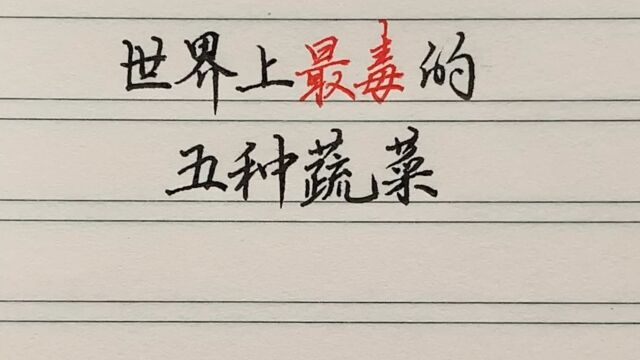 世界上最毒的
五种蔬菜